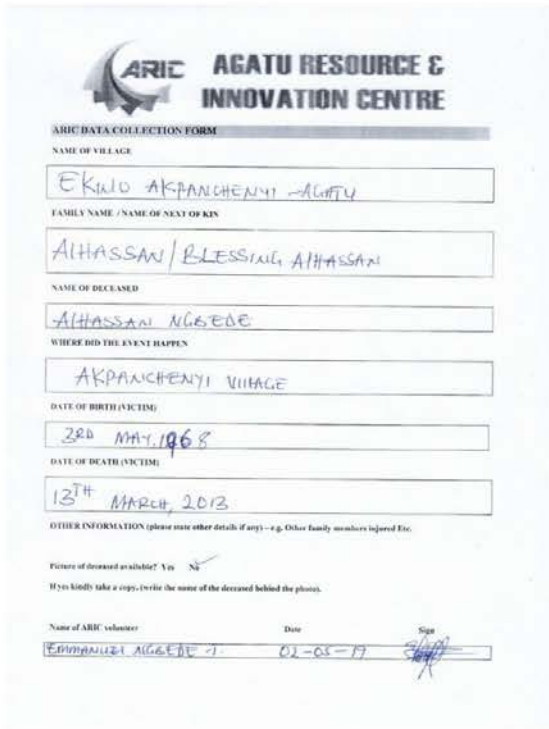 ARIC
AGATU RESOURCE &
INNOVATION CENTRE
ARIC DATA COLLECTION FORM
NAME OF VILLAGE
EKWO AKPANCHENYI - AGATU
FAMILY NAME / NAME OF NEXT OF KIN
AlHASSAN / BLESSING AlHASSAN
NAME OF DECEASED
AlHASSAN NGBEDE
WHERE DID THE EVENT HAPPEN
AKPANCHENYI VIllAGE
DATE OF BIRTH (VICTIM)
3RD MAY, 1968
DATE OF DEATH (VICTIM)
13TH MARCH, 2013
OTHER INFORMATION (please state other details if any) – e.g. Other family members injured Etc.
Picture of deceased available? Yes No
If yes kindly take a copy. (write the name of the deceased behind the photo).
Name of ARIC volunteer Date Sign
EMMANUEL NGBEDE J. 02-05-19